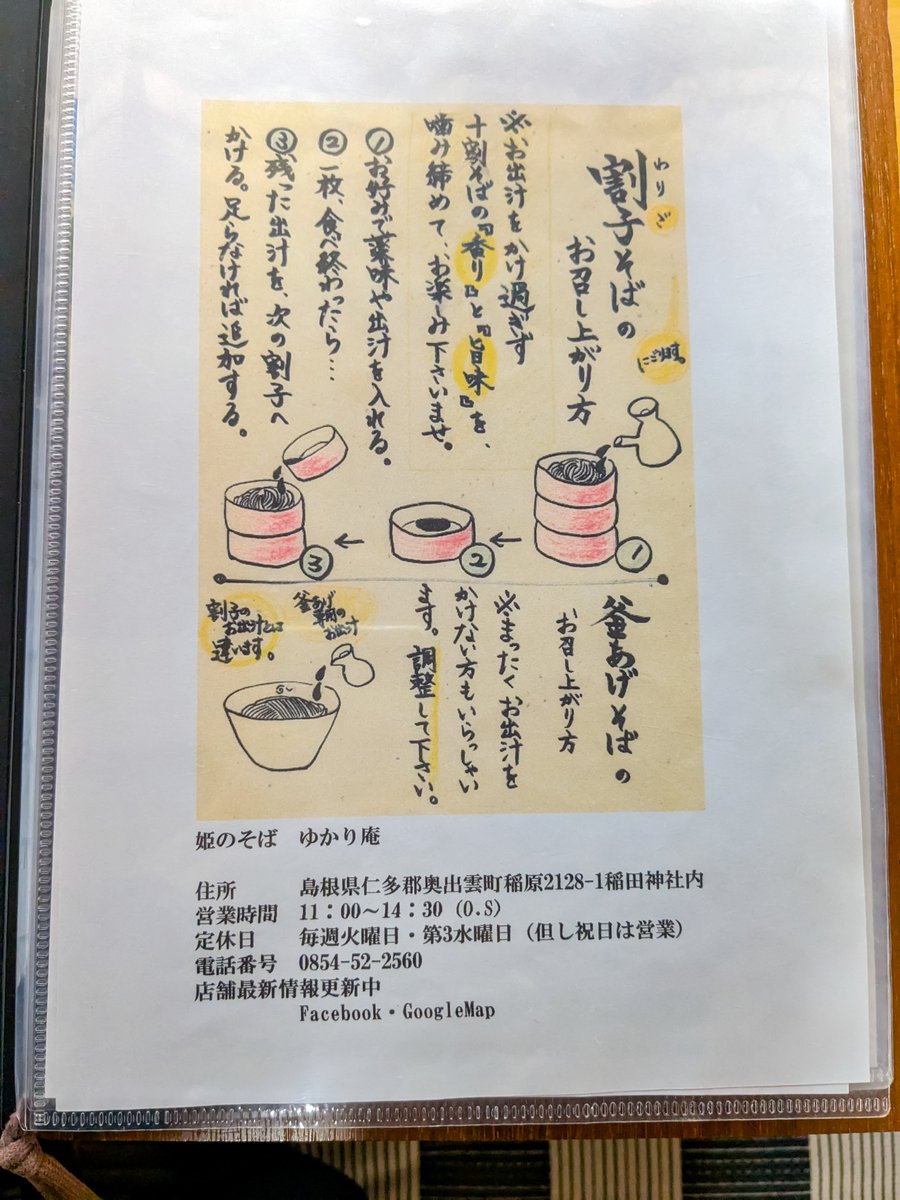 割子そばの
わりご
にごります。
お召し上がり方
※お出汁をかけ過ぎず
十割そばの『香り』と『旨味』を、
噛み締めて、お楽しみ下さいませ。
①お好みで薬味や出汁を入れる。
②一枚、食べ終わったら…
③残った出汁を、次の割子へ
かける。足らなければ追加する。
①
②
③
釜あげそばの
お召し上がり方
※まったくお出汁を
かけない方もいらっしゃい
ます。調整して下さい。
釜あげ
専用の
お出汁
割子の
お出汁とは
違います。
姫のそば　ゆかり庵
住所　島根県仁多郡奥出雲町稲原2128-1稲田神社内
営業時間　11：00～14：30（O.S）
定休日　毎週火曜日・第3水曜日（但し祝日は営業）
電話番号　0854-52-2560
店舗最新情報更新中
Facebook・GoogleMap